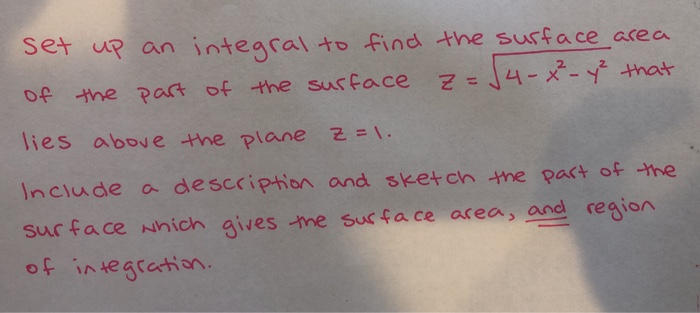 Set up an integral to find the surface area
of the part of the surface z = √4-x²-y² that
lies above the plane z=1.
Include a description and sketch the part of the
surface which gives the surface area, and region
of integration.